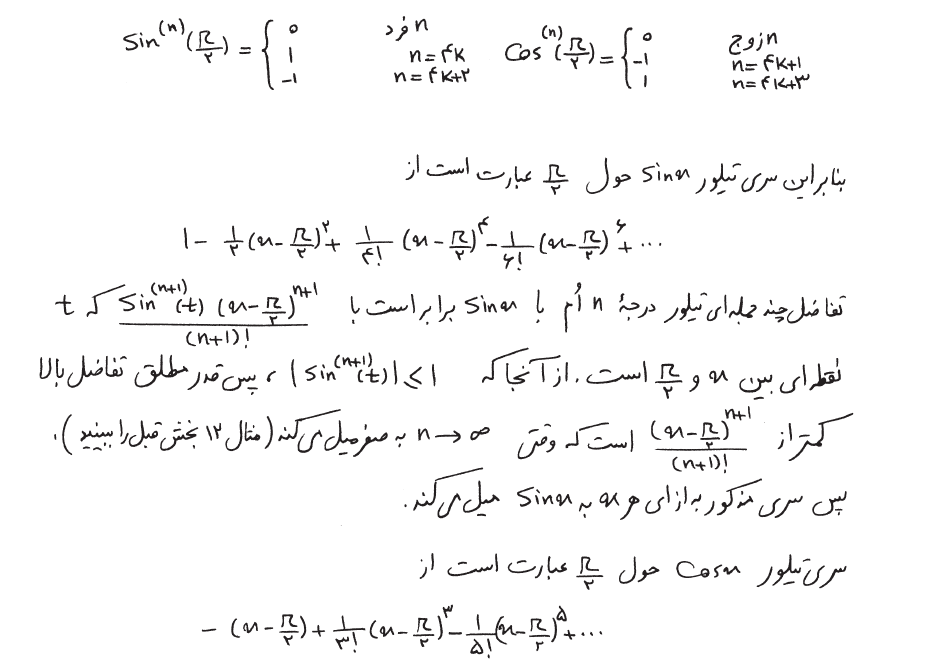 sin⁽ⁿ⁾(π/۲) = { ۰ n فرد ، ۱ n=۴k ، -۱ n=۴k+۲    cos⁽ⁿ⁾(π/۲) = { ۰ n زوج ، -۱ n=۴k+۱ ، ۱ n=۴k+۳
بنابراین سری تیلور sinx حول π/۲ عبارت است از
۱ - ۱/۲ (x-π/۲)^۲ + ۱/۴! (x-π/۲)^۴ - ۱/۶! (x-π/۲)^۶ + ...
تفاضل چند جمله‌ای تیلور درجهٔ n اُم با sinx برابر است با sin⁽ⁿ⁺¹⁾(t) (x-π/۲)^{n+۱} / (n+۱)! که t
نقطه‌ای بین x و π/۲ است. از آنجا که |sin⁽ⁿ⁺¹⁾(t)| ⩽ ۱ ، پس قدر مطلق تفاضل بالا
کمتر از (x-π/۲)^{n+۱} / (n+۱)! است که وقتی n → ∞ به صفر میل می‌کند (مثال ۱۲ بخش قبل را ببینید).
پس سری مذکور به ازای هر x به sinx میل می‌کند.
سری تیلور cosx حول π/۲ عبارت است از
- (x-π/۲) + ۱/۳! (x-π/۲)^۳ - ۱/۵! (x-π/۲)^۵ + ...